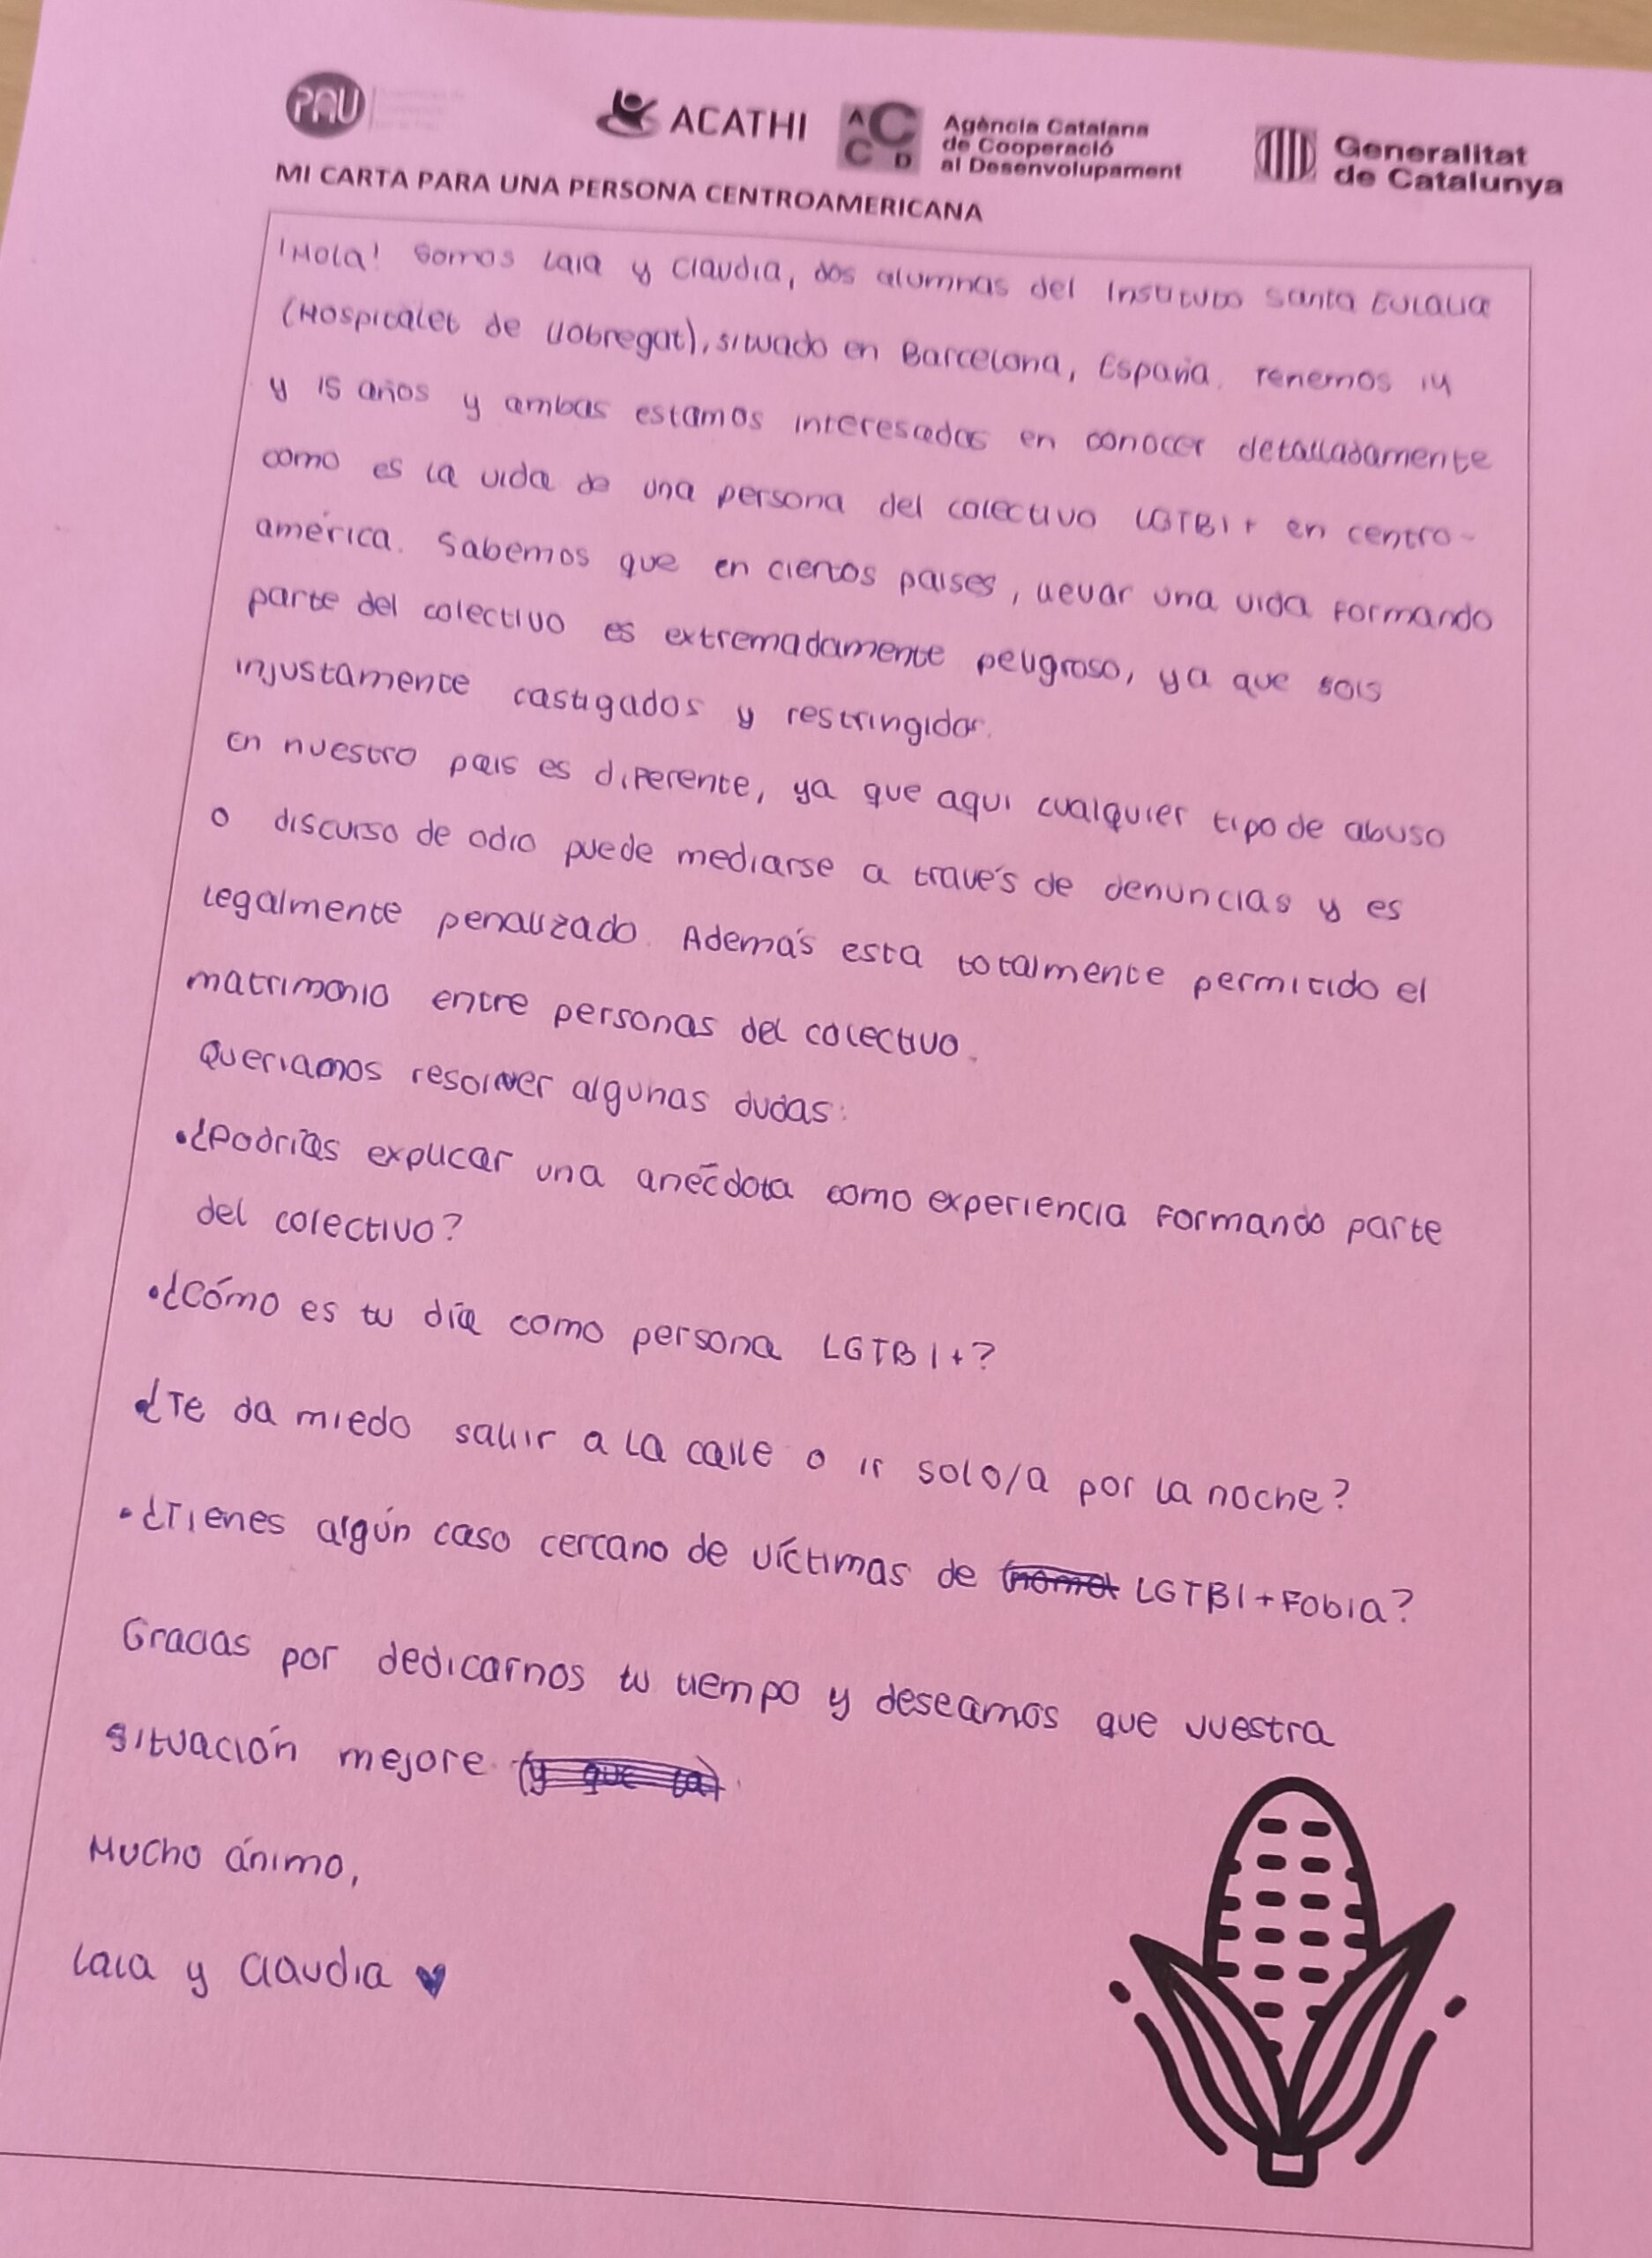 PAU
ACATHI
ACCD
Agència Catalana
de Cooperació
al Desenvolupament
Generalitat
de Catalunya
MI CARTA PARA UNA PERSONA CENTROAMERICANA
¡Hola! Somos Laia y Claudia, dos alumnas del Instituto Santa Eulalia
(Hospitalet de Llobregat), situado en Barcelona, España. Tenemos 14
y 15 años y ambas estamos interesadas en conocer detalladamente
como es la vida de una persona del colectivo LGTBI+ en centro-
américa. Sabemos que en ciertos paises, llevar una vida formando
parte del colectivo es extremadamente peligroso, ya que sois
injustamente castigados y restringidos.
En nuestro pais es diferente, ya que aqui cualquier tipo de abuso
o discurso de odio puede mediarse a través de denuncias y es
legalmente penalizado. Además esta totalmente permitido el
matrimonio entre personas del colectivo.
Queriamos resolver algunas dudas:
•¿Podrías explicar una anécdota como experiencia formando parte
del colectivo?
•¿Cómo es tu día como persona LGTBI+?
•¿Te da miedo salir a la calle o ir solo/a por la noche?
•¿Tienes algún caso cercano de víctimas de LGTBI+Fobia?
Gracias por dedicarnos tu tiempo y deseamos que vuestra
situación mejore. (y que la).
Mucho ánimo,
Laia y Claudia ♥